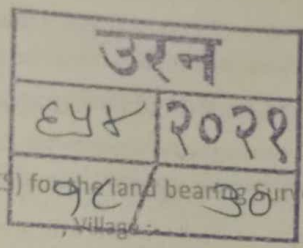 उरन
६५४ २०२१
१८/३०
S) for the land bearing Sur
, Village